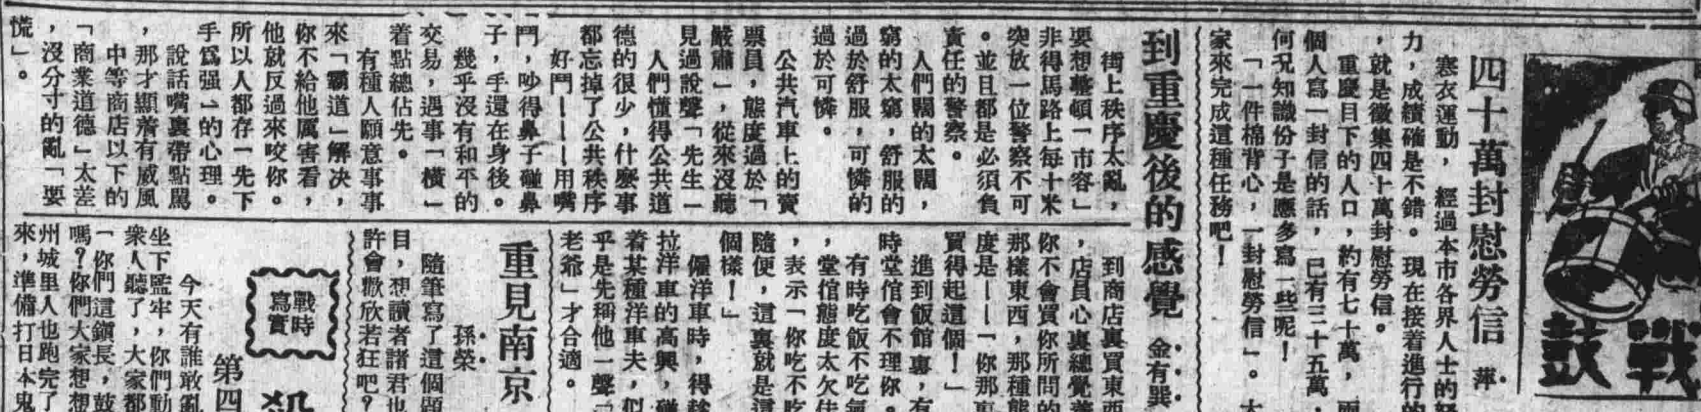 戰鼓
四十萬封慰勞信 萍
寒衣運動，經過本市各界人士的
力，成績確是不錯。現在接着進行的
，就是徵集四十萬封慰勞信。
重慶目下的人口，約有七十萬，兩
個人寫一封信的話，已有三十五萬，
何況知識份子是應多寫一些呢！
「一件棉背心，一封慰勞信」。大
家來完成這種任務吧！
到重慶後的感覺 金有巽
街上秩序太亂，
要想整頓「市容」
非得馬路上每十米
突放一位警察不可
。並且都是必須負
責任的警察。
人們闊的太闊，
窮的太窮，舒服的
過於舒服，可憐的
過於可憐。
公共汽車上的賣
票員，態度過於「
嚴肅」，從來沒聽
見過說聲「先生」
人們懂得公共道
德的很少，什麼事
都忘掉了公共秩序
好鬥————用嘴
鬥，吵得鼻子碰鼻
子，手還在身後。
幾乎沒有和平的
交易，遇事「橫」
着點總佔先。
有種人願意事事
來「霸道」解決，
你不給他厲害看，
他就反過來咬你。
所以人都存「先下
手爲强」的心理。
說話嘴裏帶點罵
，那才顯着有威風
中等商店以下的
「商業道德」太差
，沒分寸的亂「要
慌」。
到商店裏買東西
，店員心裏總覺着
你不會買你所問的
那樣東西，那種態
度是——「你那裏
買得起這個！」
進到飯館裏，有
時堂倌會不理你。
有時吃飯不吃
，堂倌態度太欠
，表示「你吃不吃
隨便，這裏就是這
個樣！」
僱洋車時，得趁
拉洋車的高興，碰
着某種洋車夫，似
乎是先稱他一聲「
老爺」才合適。
重見南京
孫榮
隨筆寫了這個題
目，想讀者諸君也
許會歡欣若狂吧？
戰時寫實
第四
今天有誰敢亂
坐下監牢，你們動
衆人聽了，大家都
「你們這鎮長，鼓
嗎？你們大家想想
州城里人也跑完了
來，準備打日本鬼